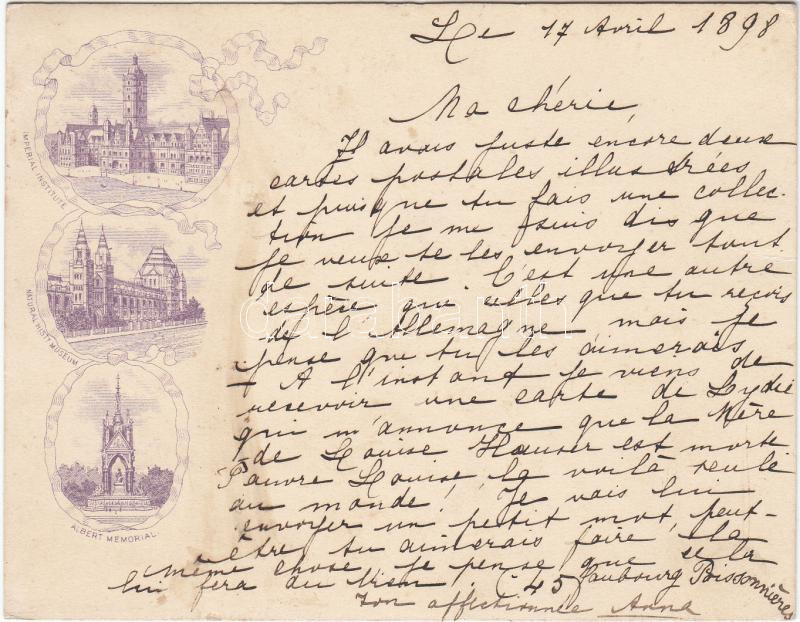 Le 17 Avril 1898
Ma chérie,
J'avais juste encore deux
cartes postales illustrées
et puisque tu fais une collec-
tion je me suis dis que
je veux te les envoyer tout
de suite. C'est une autre
espèce que celles que tu reçois
de l'Allemagne, mais je
pense que tu les aimerais
— A l'instant je viens de
recevoir une carte de Lydie
qui m'annonce que la Mère
de Louise Hauser est morte
Pauvre Louise, la voilà seule
au monde! Je vais lui
envoyer un petit mot, peut-
être tu aimerais faire la
même chose, je pense que cela
lui fera du bien. (45 Faubourg Poissonnières
Ton affectionnée Anna
IMPERIAL INSTITUTE
NATURAL HIST. MUSEUM
ALBERT MEMORIAL.
darabanth